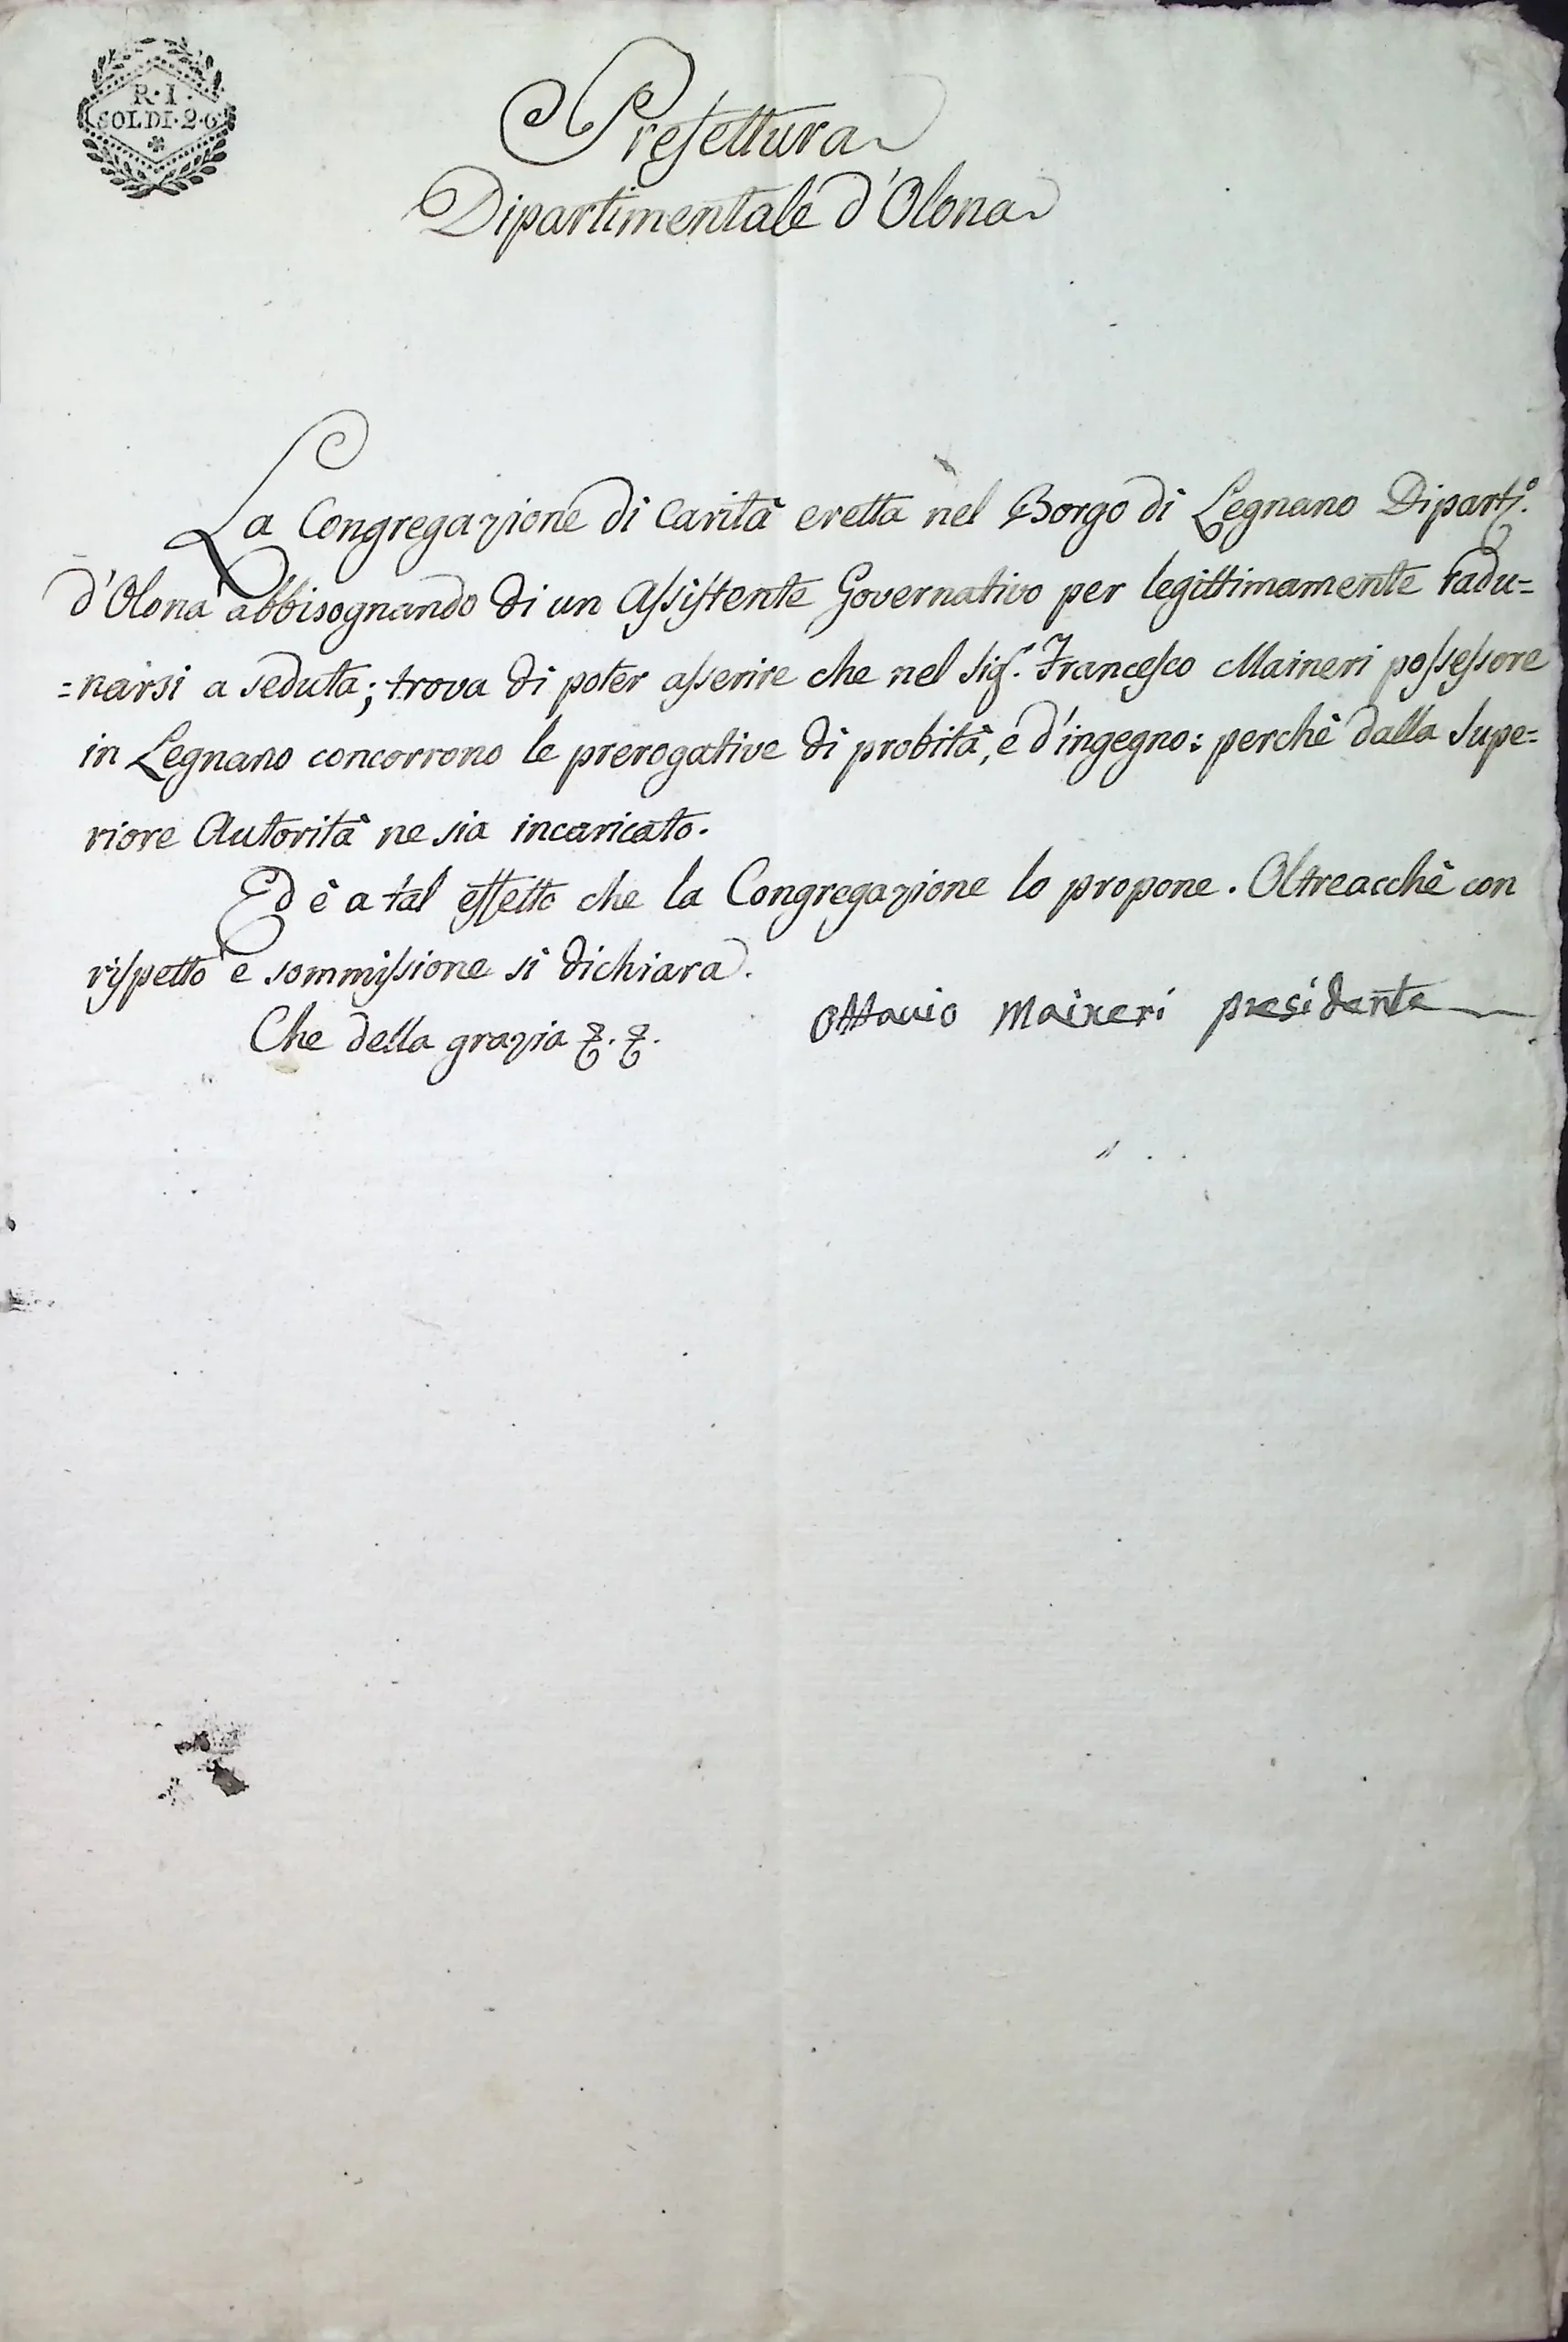 R·I·
SOLDI·2·6
Prefettura
Dipartimentale d'Olona
La Congregazione di Carità eretta nel Borgo di Legnano Dipart.º
d'Olona abbisognando di un Assistente Governativo per legittimamente radu=
=narsi a seduta; trova di poter asserire che nel Sig.r Francesco Maineri possessore
in Legnano concorrono le prerogative di probità, e d'ingegno: perchè dalla Supe=
riore Autorità ne sia incaricato.
Ed è a tal effetto che la Congregazione lo propone. Oltreacchè con
rispetto e sommissione si dichiara.
Che della grazia &. &.
Ottavio Maineri presidente